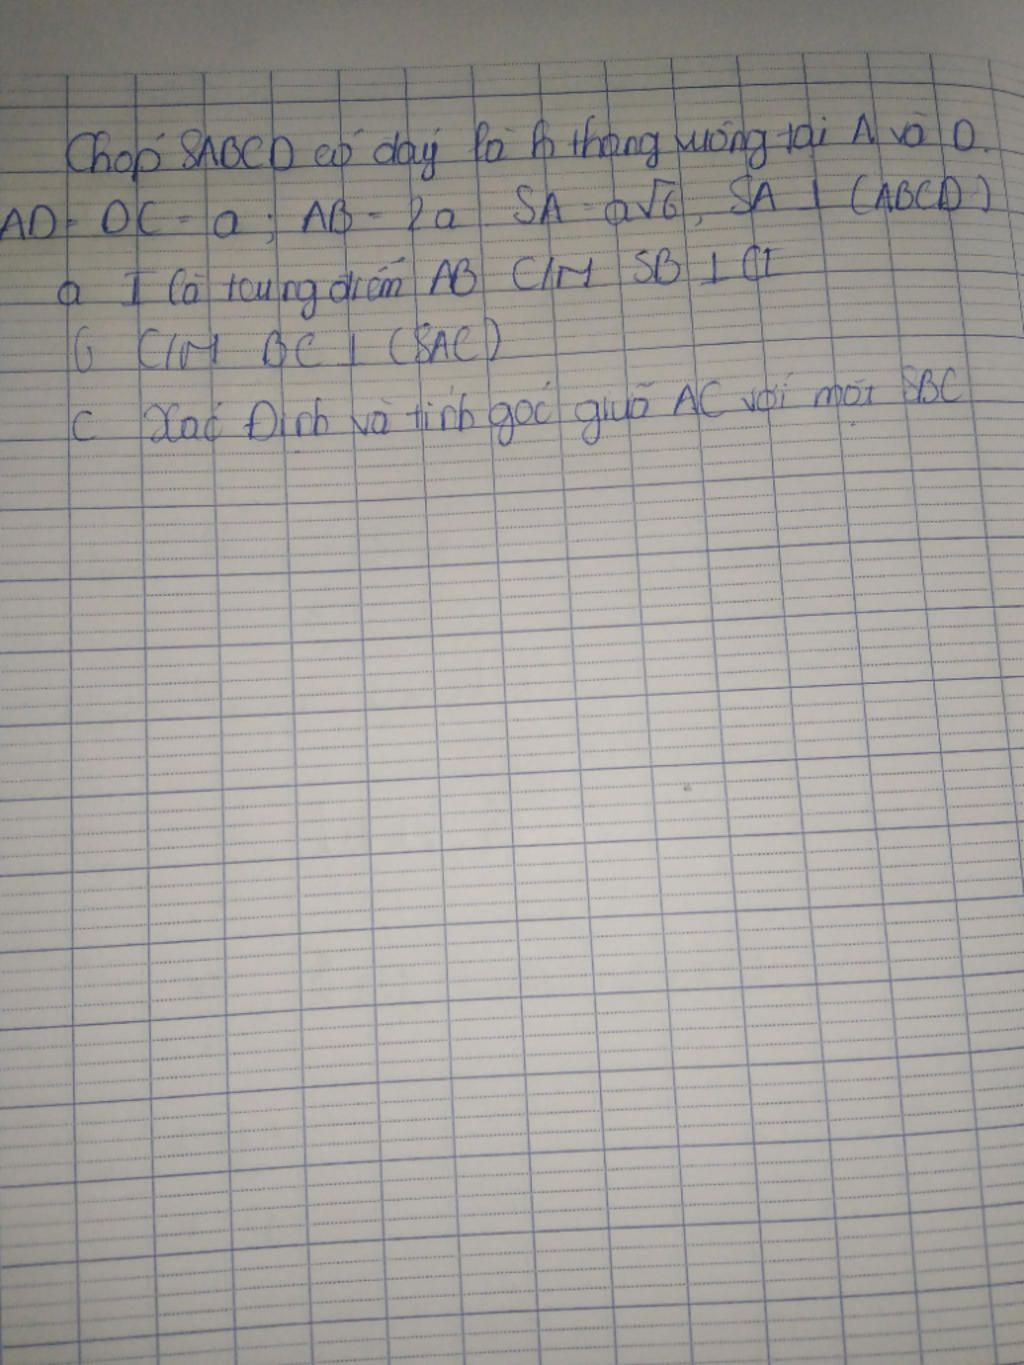 Chóp SABCD có đáy là h thang vuông tại A và D.
AD = DC = a ; AB = 2a SA = a√6, SA ⊥ (ABCD)
a I là trung điểm AB C/M SB ⊥ CI
b C/M BC ⊥ (SAC)
c Xác Định và tính góc giữa AC với mặt SBC